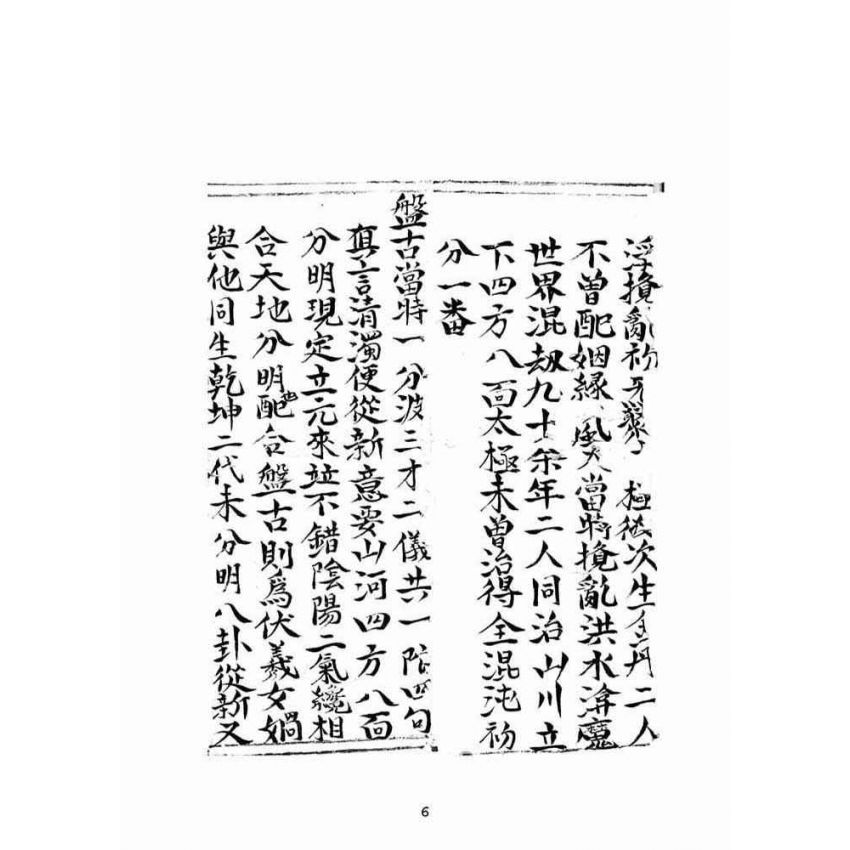 浮攪亂初 次生 丹二人
不曾配姻緣 當時攪亂洪水渰魔
世界混劫九十余年二人同治山川立
下四方八面太極未曾治得全混沌初
分一番
盤古當時一分波三才二儀共一 四句
真言清濁便從新意要山河四方八面
分明現定立元來並不錯陰陽二氣纔相
合天地分明配合盤古則爲伏羲女媧
與他同生乾坤二代未分明八卦從新又
6